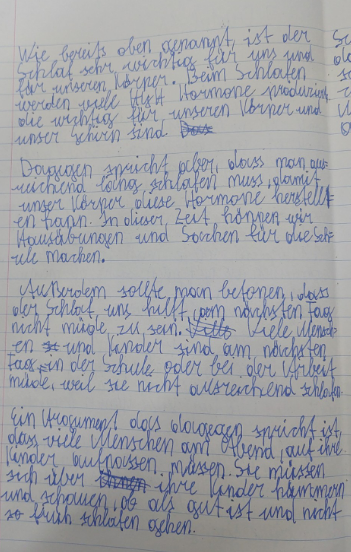 Wie bereits oben genannt, ist der
Schlaf sehr wichtig für uns und
für unseren Körper. Beim Schlafen
werden viele Hormone produziert
die wichtig für unseren Körper und
unser Gehirn sind.
Dagegen spricht aber, dass man aus-
reichend lang schlafen muss, damit
unser Körper diese Hormone herstell-
en kann. In dieser Zeit können wir
Hausübungen und Sachen für die Sch-
ule machen.
Außerdem sollte man betonen, dass
der Schlaf uns hilft, am nächsten Tag
nicht müde zu sein. Viele Mensch-
en und Kinder sind am nächsten
Tag in der Schule oder bei der Arbeit
müde, weil sie nicht ausreichend schlafen.
Ein Argument das dagegen spricht ist,
dass viele Menschen am Abend auf ihre
Kinder aufpassen müssen. Sie müssen
sich über ihre Kinder kümmern
und schauen, ob alles gut ist und nicht
so früh schlafen gehen.